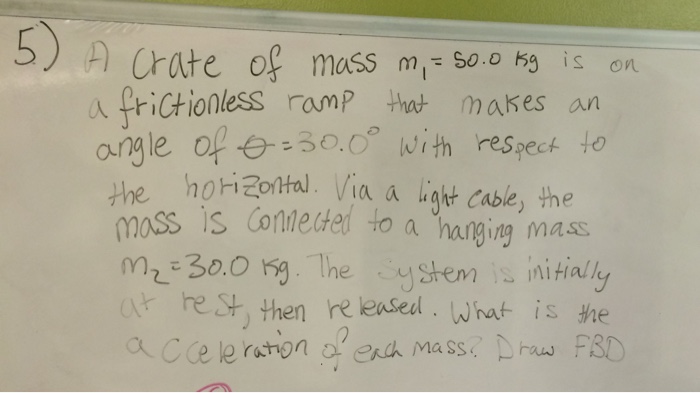 5.) A crate of mass m₁ = 50.0 kg is on
a frictionless ramp that makes an
angle of θ = 30.0° with respect to
the horizontal. Via a light cable, the
mass is connected to a hanging mass
m₂ = 30.0 kg. The system is initially
at rest, then released. What is the
acceleration of each mass? Draw FBD